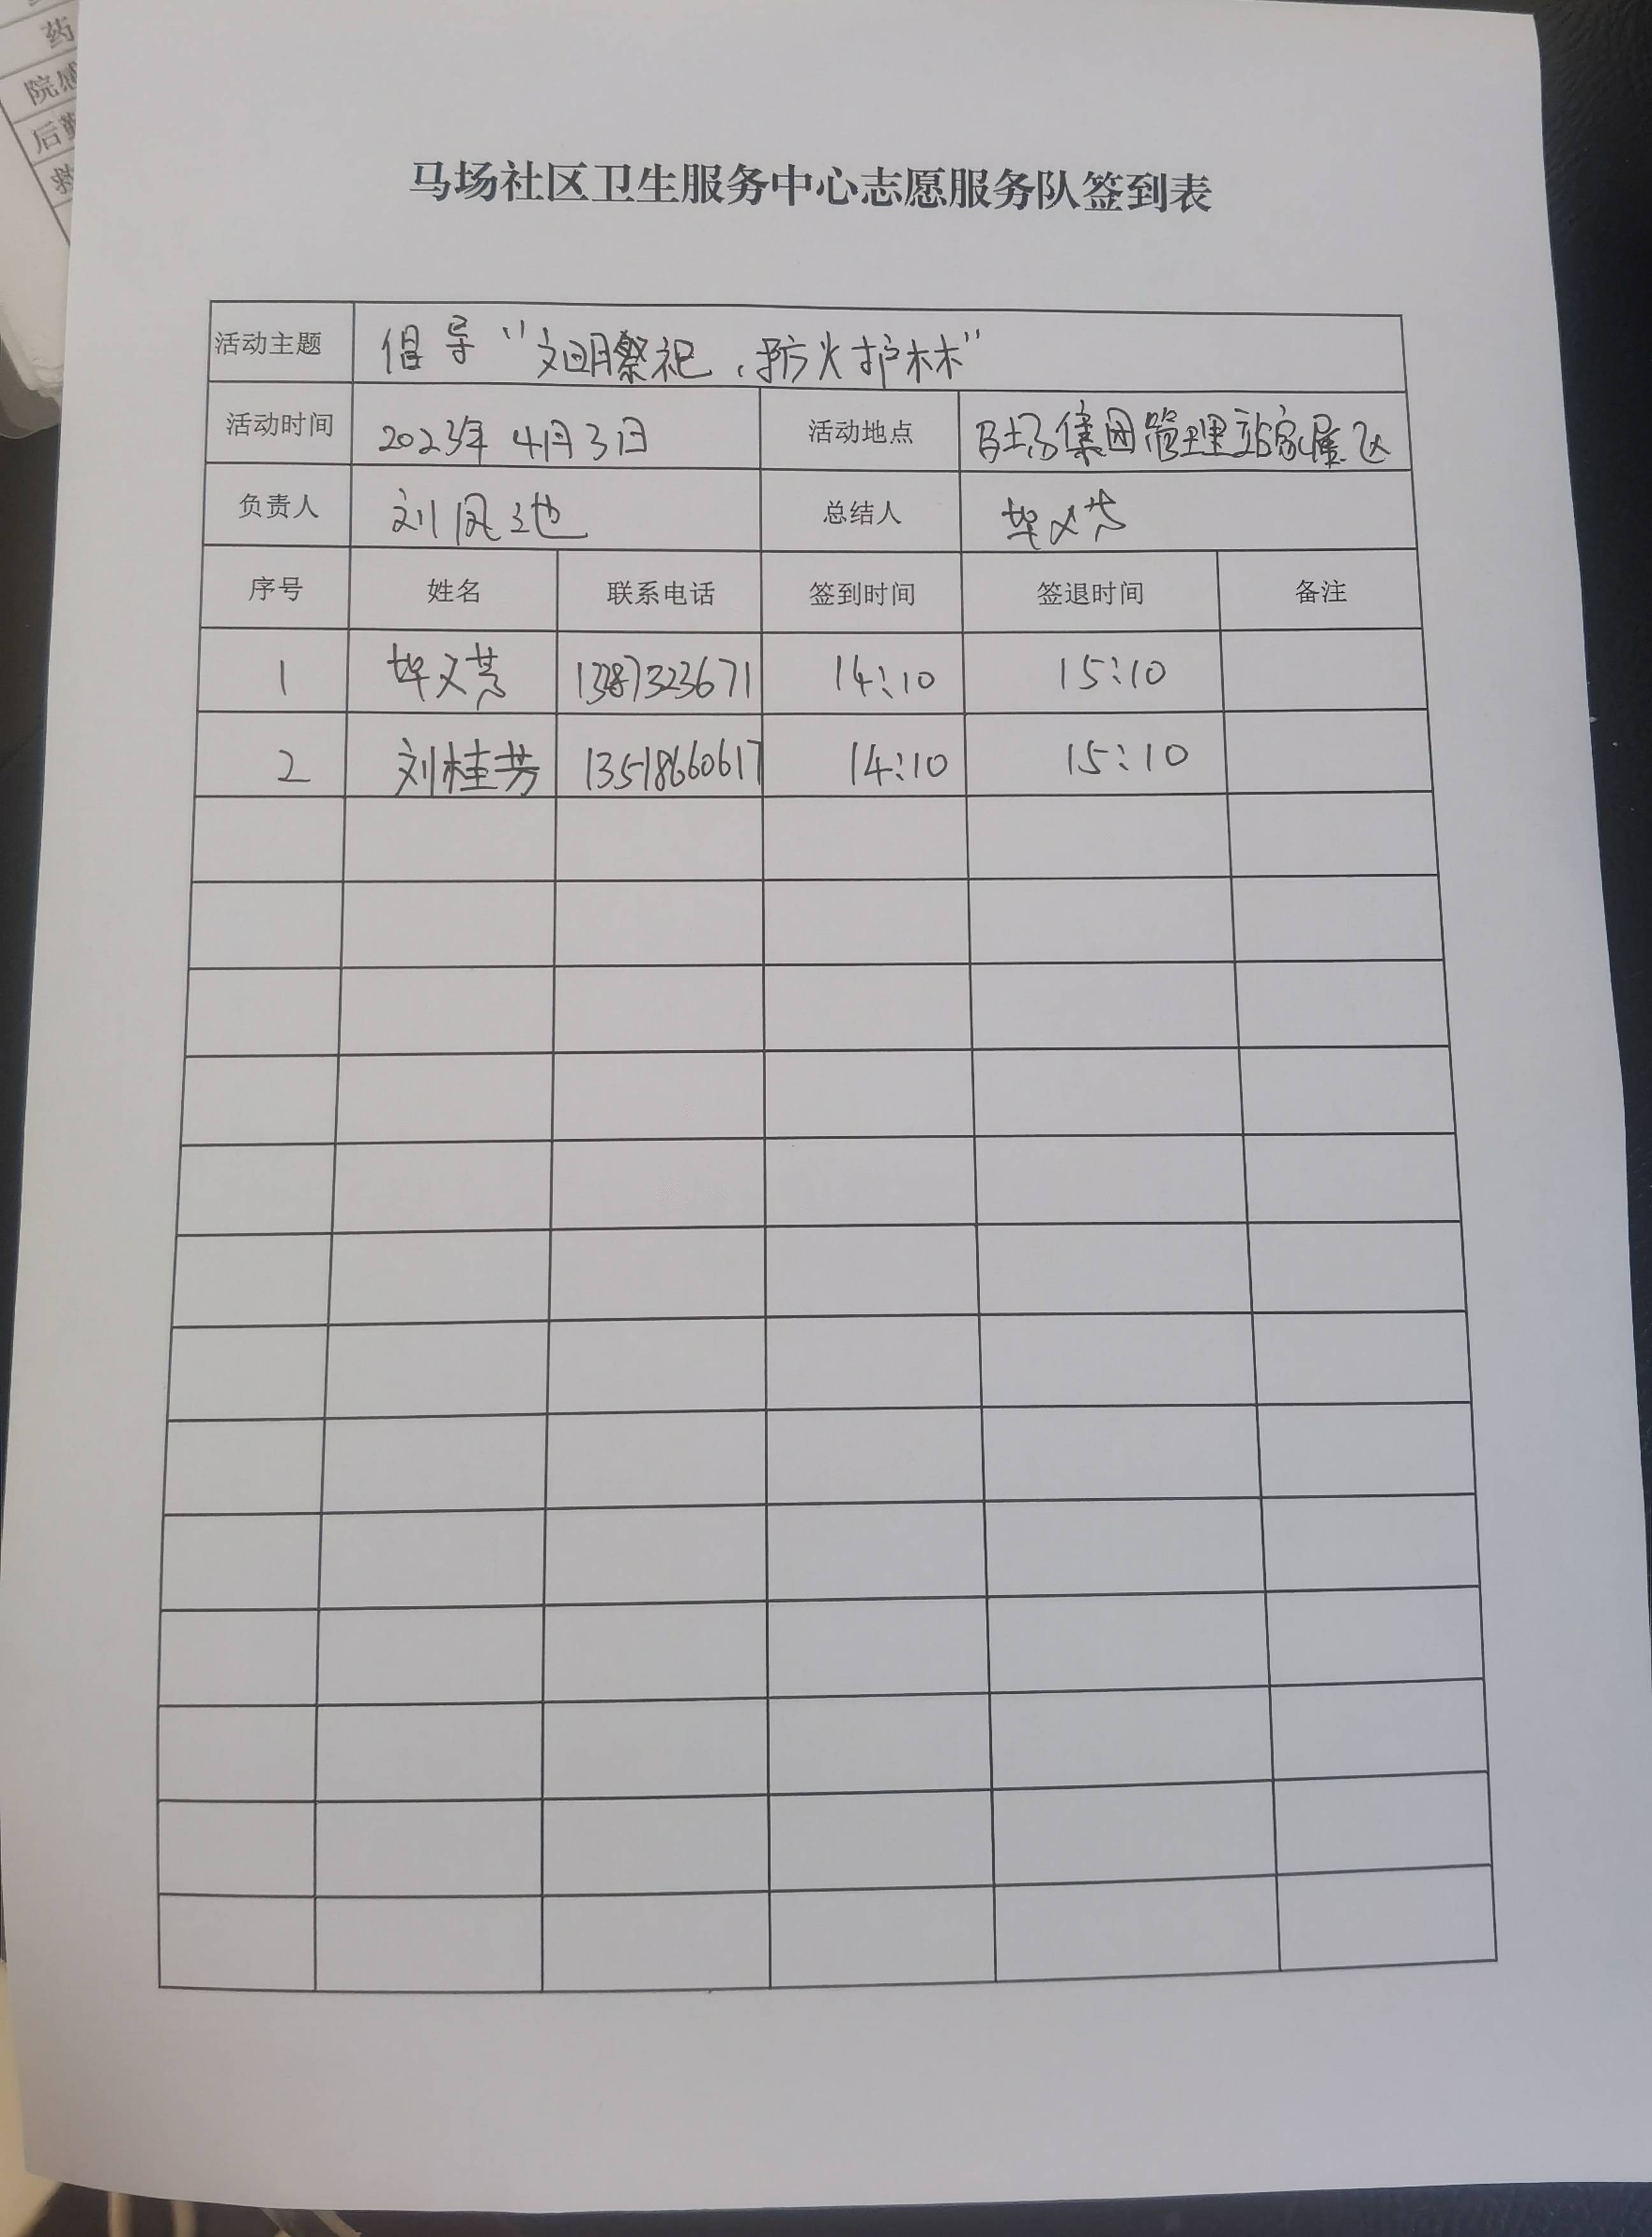 药
院感
后勤
马场社区卫生服务中心志愿服务队签到表
活动主题 倡导“文明祭祀,防火护林”
活动时间 2023年4月3日 活动地点 马场集团管理站家属区
负责人 刘凤池 总结人
序号 姓名 联系电话 签到时间 签退时间 备注
1 1387323671 14:10 15:10
2 刘桂芳 13518660617 14:10 15:10